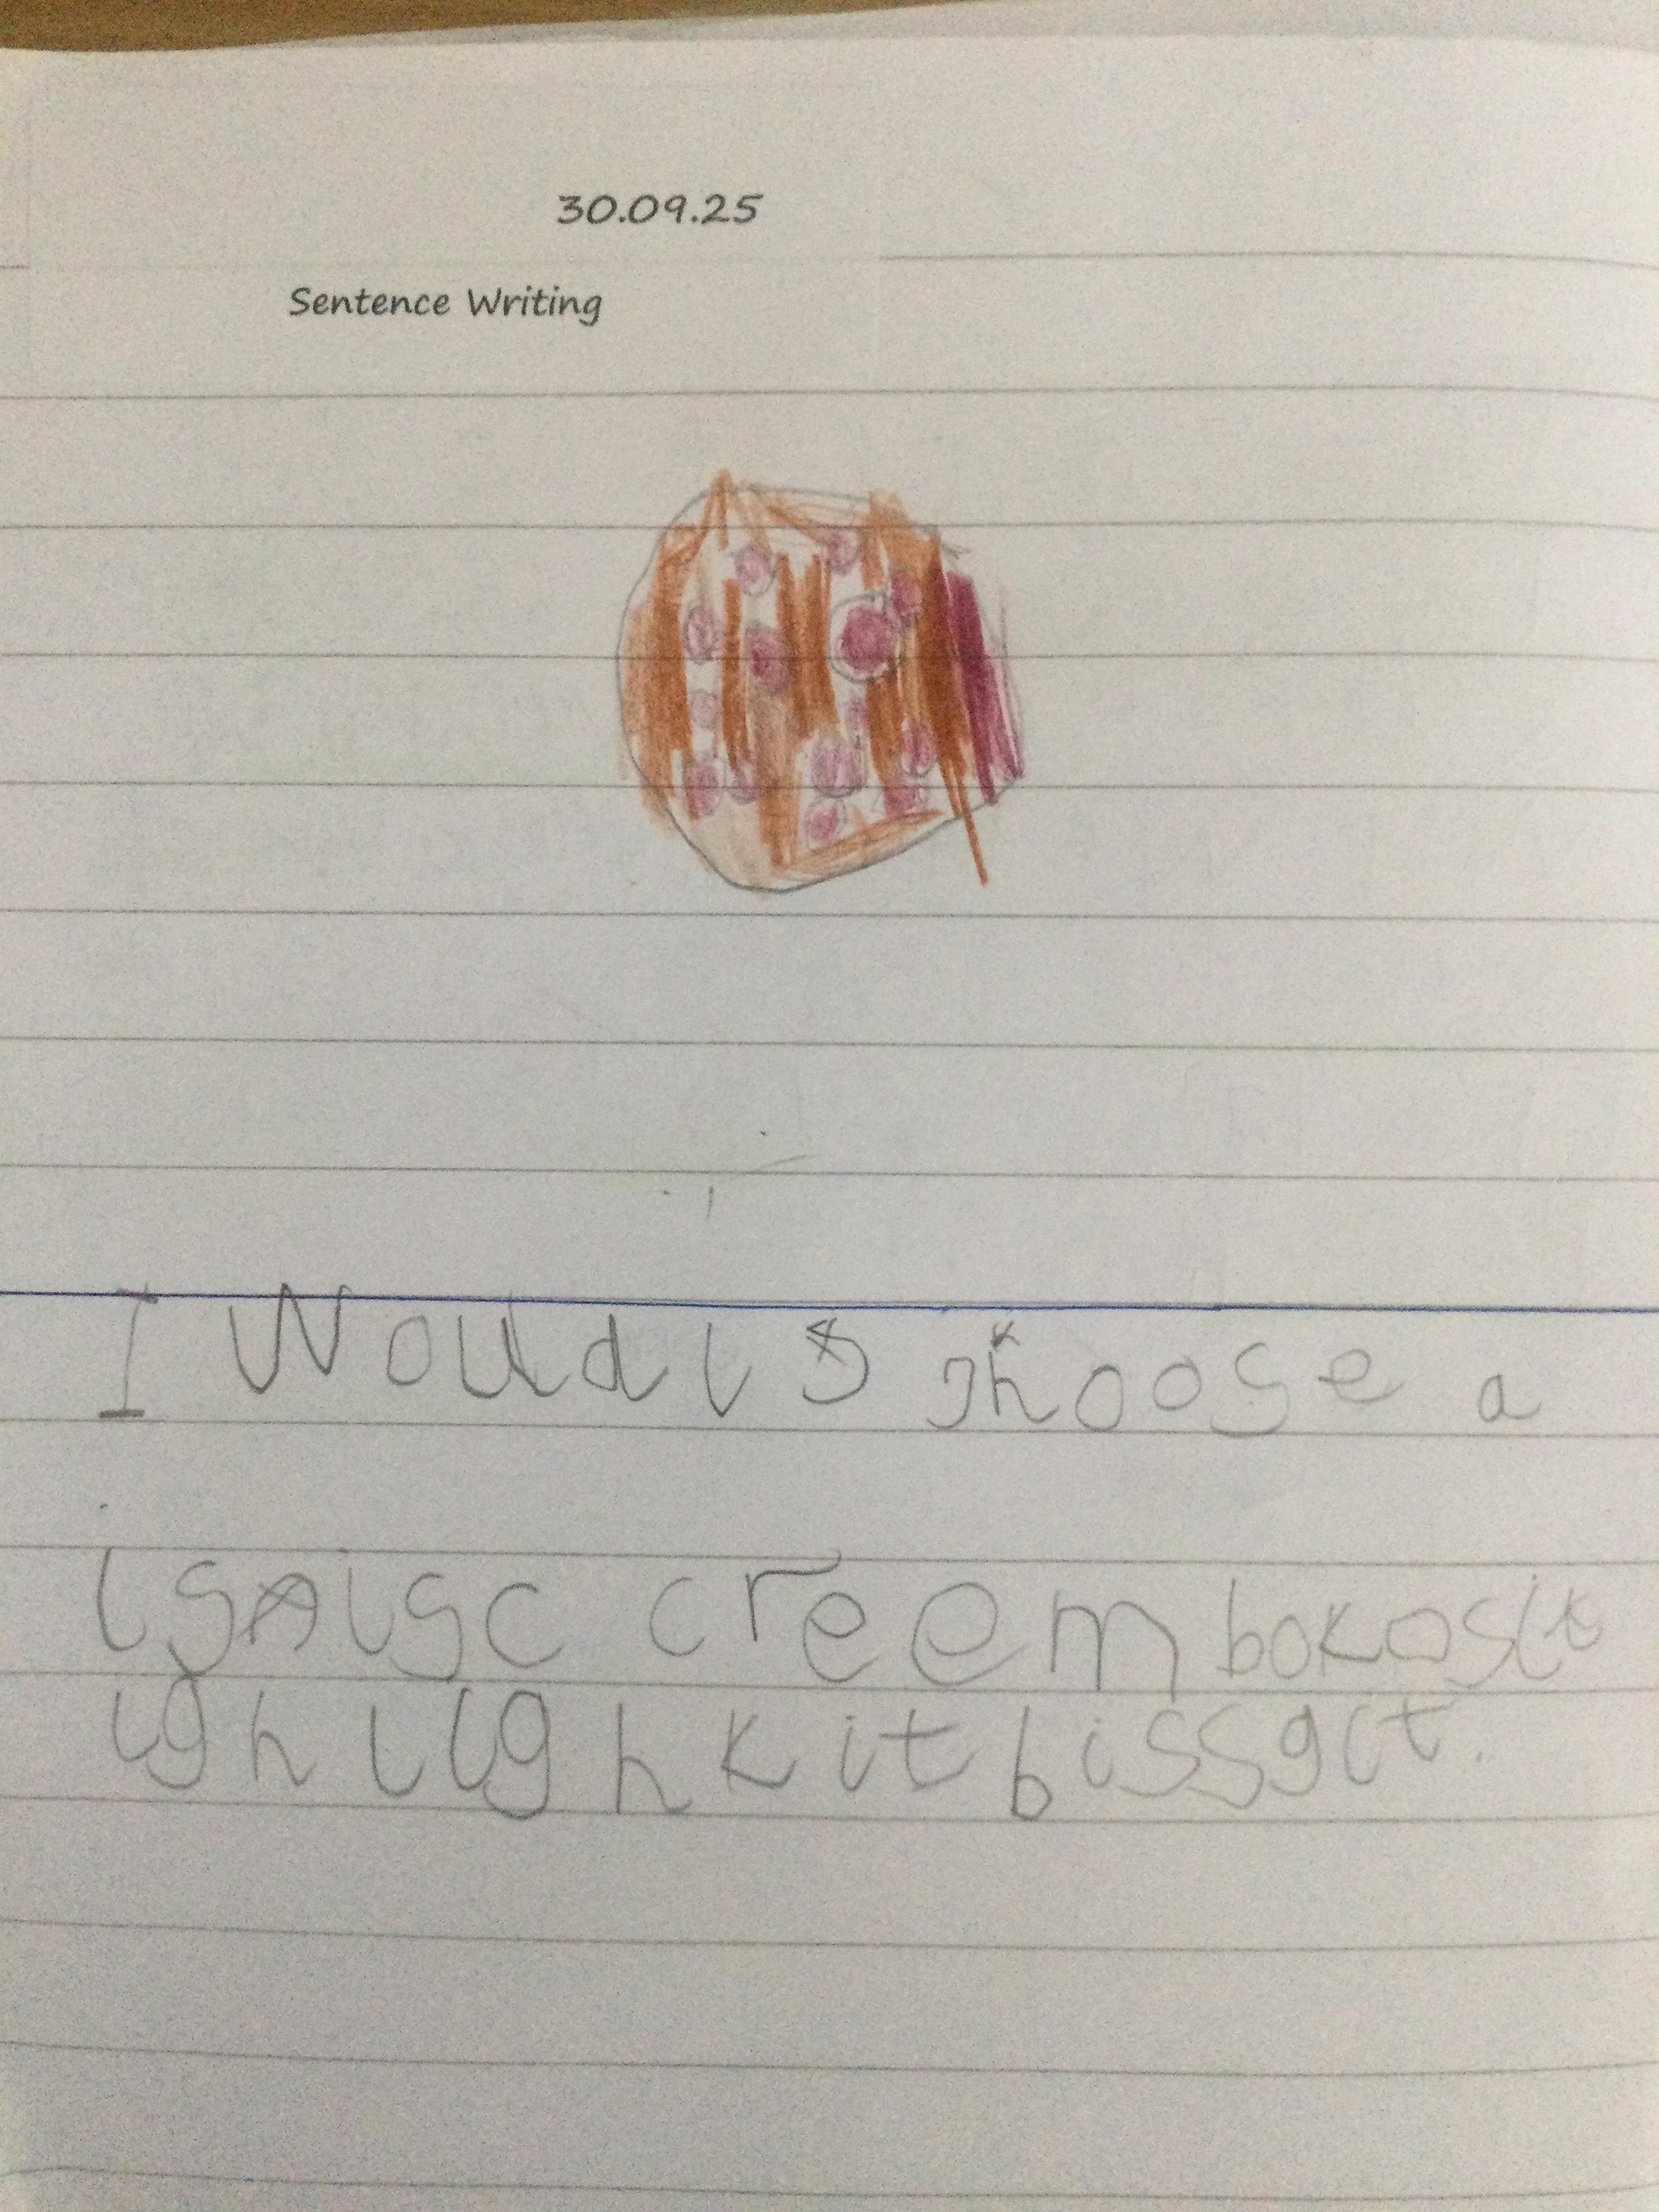 30.09.25
Sentence Writing
I Would choose a
creem bokosit
igh ligh kit bissgit.